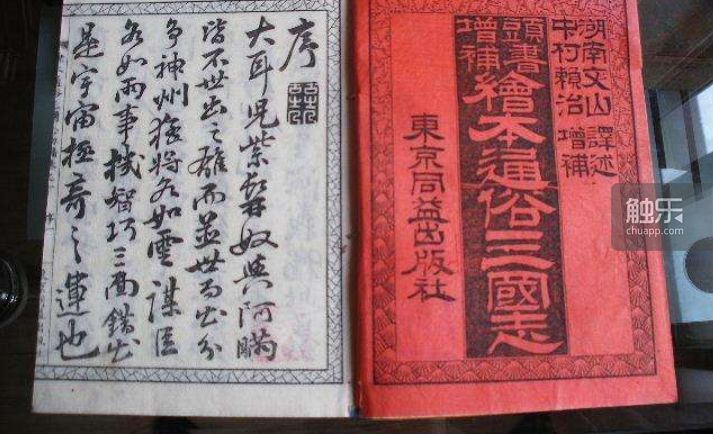 湖南文山 譯述
中村頼治 增補
頭書
增補
繪本通俗三國志
東京同益出版社
序
大耳兒紫髯奴與阿瞞
皆不世出之雄而並世而出分
爭神州猛將如雲謀臣
如雨事機智巧三面錯出
是宇宙極奇之運也
触乐
chuapp.com